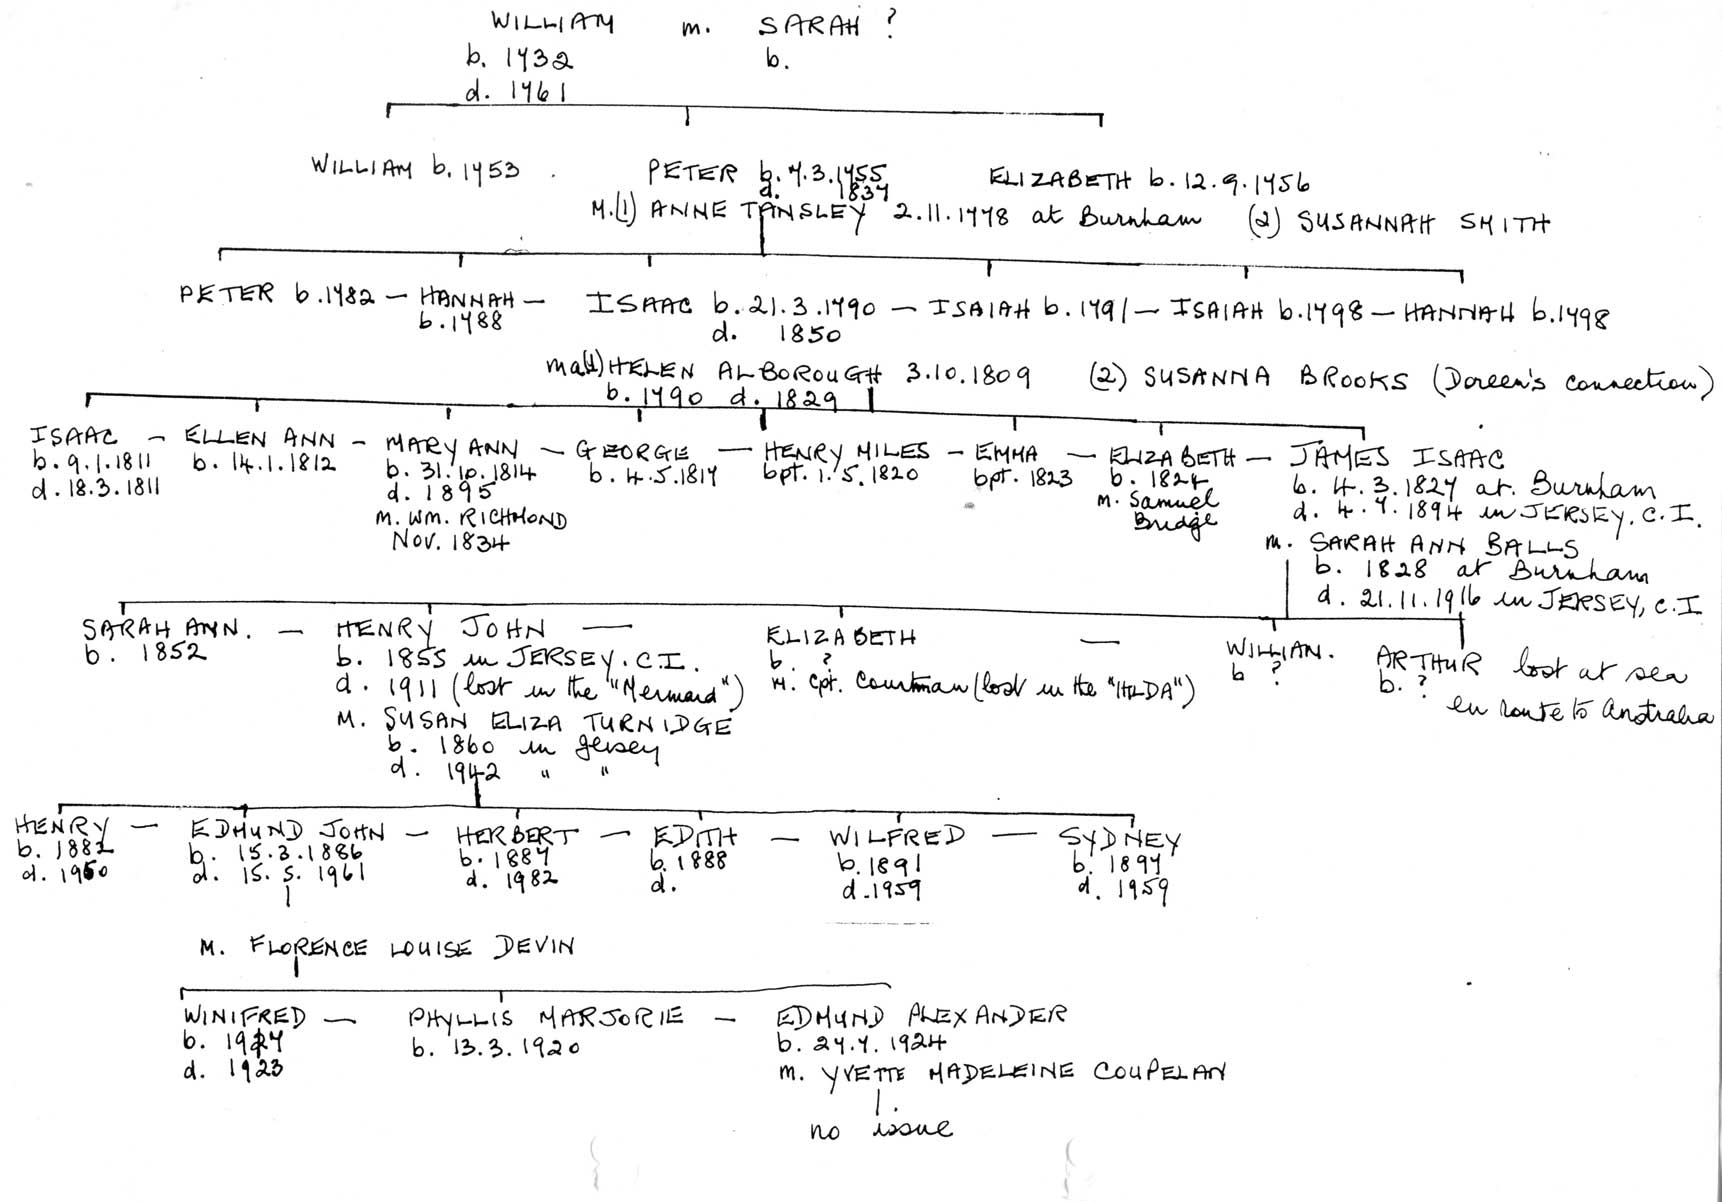 WILLIAM m. SARAH ?
b. 1732 b.
d. 1761
WILLIAM b. 1753 . PETER b. 7.3.1755 ELIZABETH b. 12.9.1756
d. 1837
M.(1) ANNE TANSLEY 2.11.1778 at Burnham (2) SUSANNAH SMITH
PETER b.1782 — HANNAH — ISAAC b. 21.3.1790 — ISAIAH b. 1791 — ISAIAH b.1798 — HANNAH b.1798
b.1788 d. 1850
ma(1) HELEN ALBOROUGH 3.10.1809 (2) SUSANNA BROOKS (Doreen's connection)
b. 1790 d. 1829
ISAAC — ELLEN ANN — MARY ANN — GEORGE — HENRY MILES — EMMA — ELIZABETH — JAMES ISAAC
b. 9.1.1811 b. 14.1.1812 b. 31.10.1814 b. 4.5.1817 bpt. 1.5.1820 bpt. 1823 b. 1824 b. 4.3.1827 at. Burnham
d. 18.3.1811 d. 1895 m. Samuel d. 4.7.1894 in JERSEY. C.I.
m. WM. RICHMOND Bridge
Nov. 1834 m. SARAH ANN BALLS
b. 1828 at Burnham
d. 21.11.1916 in JERSEY, C.I
SARAH ANN. — HENRY JOHN — ELIZABETH — WILLIAM. ARTHUR lost at sea
b. 1852 b. 1855 in JERSEY. C.I. b. ? b ? b. ? en route to Australia
d. 1911 (lost in the "Mermaid") m. Cpt. Courtman (lost in the "HILDA")
M. SUSAN ELIZA TURNIDGE
b. 1860 in Jersey
d. 1942 " "
HENRY — EDMUND JOHN — HERBERT — EDITH — WILFRED — SYDNEY
b. 1882 b. 15.3.1886 b. 1887 b. 1888 b. 1891 b. 1897
d. 1950 d. 15.5.1961 d. 1982 d. d. 1959 d. 1959
M. FLORENCE LOUISE DEVIN
WINIFRED — PHYLLIS MARJORIE — EDMUND ALEXANDER
b. 13.3.1920 b. 27.7.1924
d. 1923 m. YVETTE MADELEINE COUPELAN
no issue